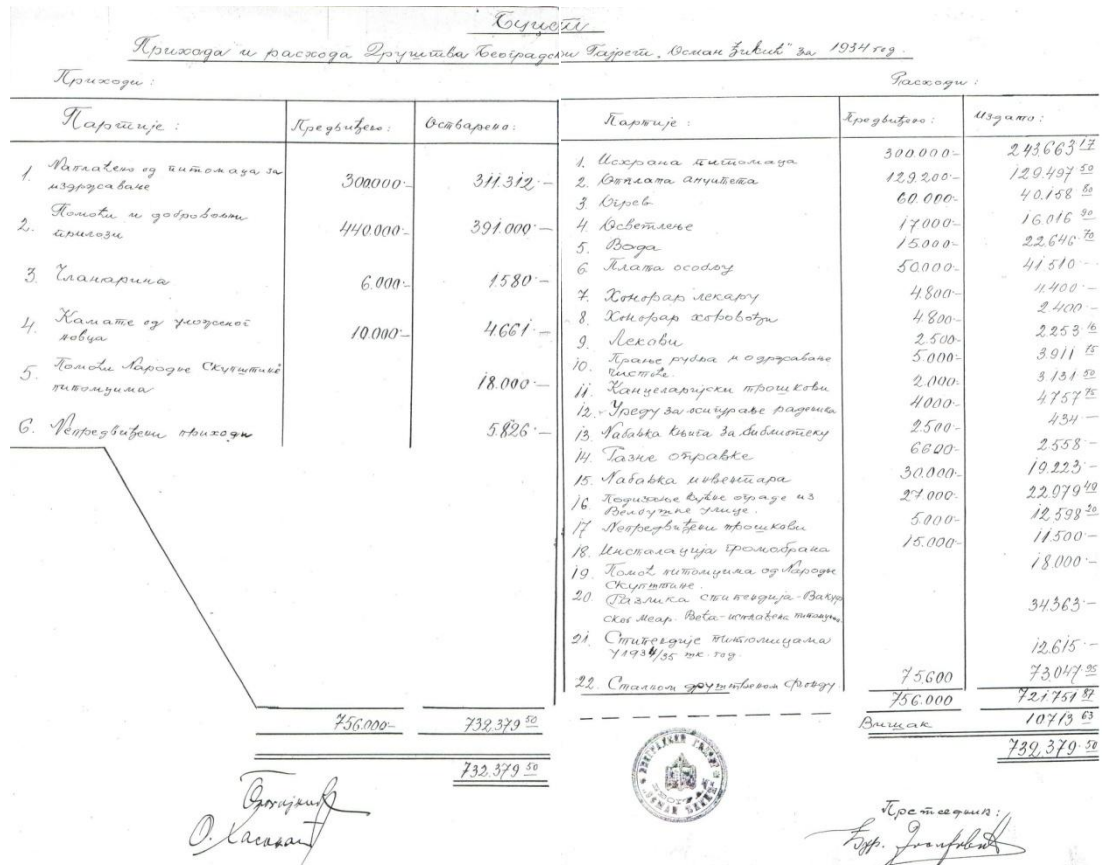 Буџет
Прихода и расхода Друштва Београдски Гајрет „Осман Ђикић" за 1934 год.
Приходи :
Партије : Предвиђено : Остварено :
1. Наплаћено од питомаца за издржавање 300000.- 311.312.-
2. Помоћи и добровољни прилози 440.000.- 391.000.-
3. Чланарина 6.000.- 1580.-
4. Камате од уложеног новца 10.000.- 4661.-
5. Помоћи Народне Скупштине питомцима 18.000.-
6. Непредвиђени приходи 5.826.-
756.000.- 732.379 50
732.379 50
О. Хасанов
Расходи :
Партије : Предвиђено : Издато :
1. Исхрана питомаца 300.000.- 243663 17
2. Отплата ануитета 129.200.- 129.497 50
3. Огрев 60.000.- 40.158 80
4. Осветлење 17000.- 16.016 90
5. Вода 15.000.- 22.646 70
6. Плата особљу 50.000.- 41.510.-
7. Хонорар лекару 4.800.- 4.400.-
8. Хонорар хоровођи 4.800.- 2.400.-
9. Лекови 2.500.- 2.253 16
10. Прање рубља и одржавање чистоће. 5.000.- 3.911 75
11. Канцеларијски трошкови 2.000.- 3.131 50
12. Уреду за осигурање радника 4000.- 4.757 75
13. Набавка књига за библиотеку 2500.- 434 -
14. Разне оправке 6600.- 2.558 -
15. Набавка инвентара 30.000.- 19.223.-
16. Подизање ограде из улице. 27.000.- 22.979 49
17. Непредвиђени трошкови 5.000.- 12.598 20
18. Инсталација громобрана 15.000.- 11.500.-
19. Помоћ питомцима од Народне Скупштине. 18.000.-
20. Разлика стипендија - Вакуфског Меар. Већа - питомцима 34363.-
21. Стипендије питомицама у 1934/35 шк. год. 12.615.-
22. Сталном друштвеном фонду 75.600 73.047.95
756.000 721.751 87
Вишак 10713 63
732.379.50
Претседник: